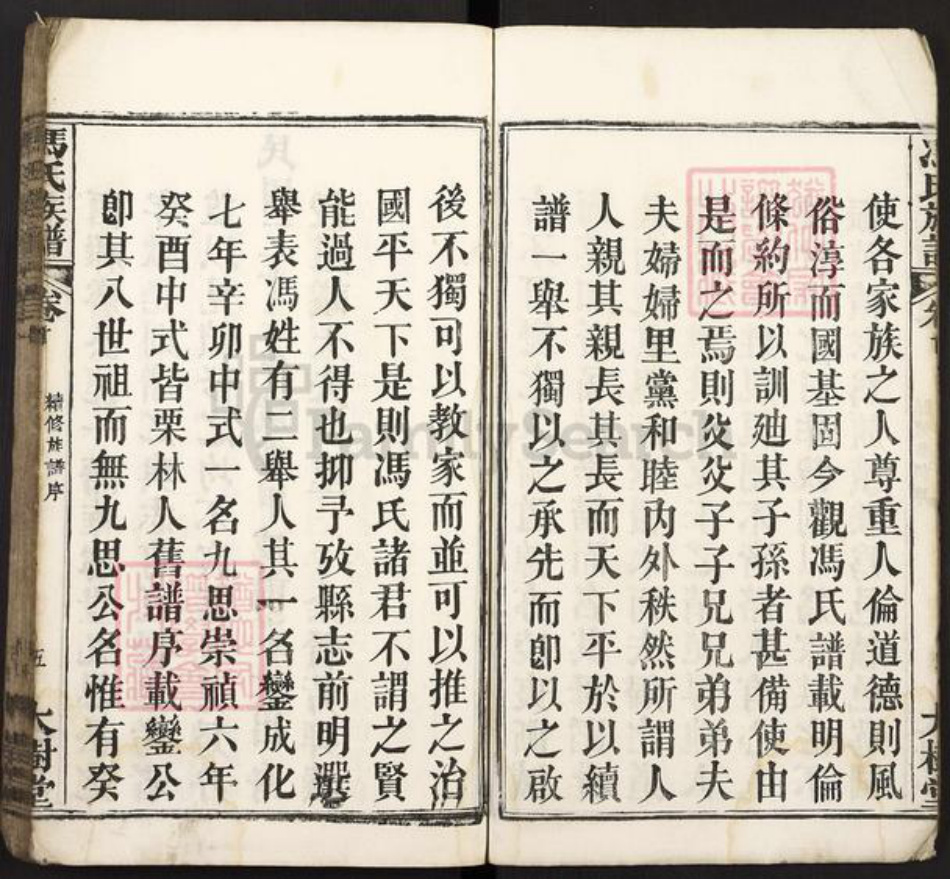 使各家族之人尊重人倫道德則風
俗淳而國基固今觀馮氏譜載明倫
條約所以訓廸其子孫者甚備使由
是而之焉則父父子子兄兄弟弟夫
夫婦婦里黨和睦內外秩然所謂人
人親其親長其長而天下平於以續
譜一舉不獨以之承先而卽以之啟
後不獨可以教家而並可以推之治
國平天下是則馮氏諸君不謂之賢
能過人不得也抑予攷縣志前明選
舉表馮姓有二舉人其一名鑾成化
七年辛卯中式一名九思崇禎六年
癸酉中式皆栗林人舊譜序載鑾公
卽其八世祖而無九思公名惟有癸
馮氏族譜 卷首 續修族譜序 五 大樹堂
FamilySearch